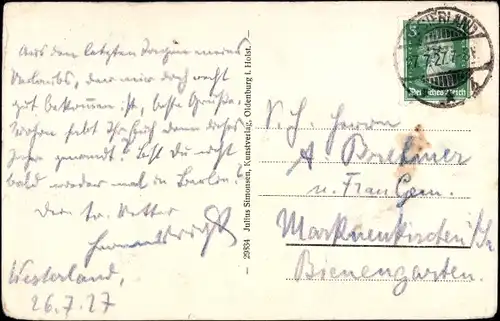 Aus den letzten Tagen meines
Urlaubs, der mir doch recht
gut bekommen ist, beste Grüße.
Wohin seid Ihr denn dieses
Jahr gewandt? Seid Du nicht
bald wieder mal in Berlin?
Dein tr. Vetter
Westerland,
26.7.27
— 29334 Julius Simonsen, Kunstverlag, Oldenburg i. Holst. —
5
Deutsches Reich
S. H. Herrn
A Brehmer
u. Frau Gem.
Markneukirchen i/S.
Bienengarten.